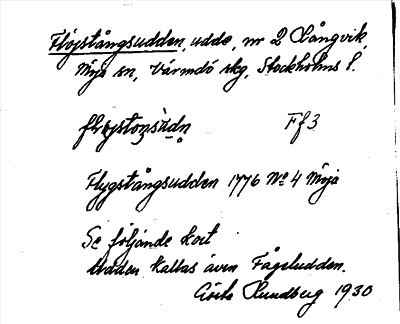 Flöjstångsudden, udde, nr 2 Långvik,
Möja sn, Värmdö skg, Stockholms l.
Ff3
Flygstångsudden 1776 No 4 Möja
Se följande kort
Udden kallas även Fågeludden.
Gösta Lundberg 1930